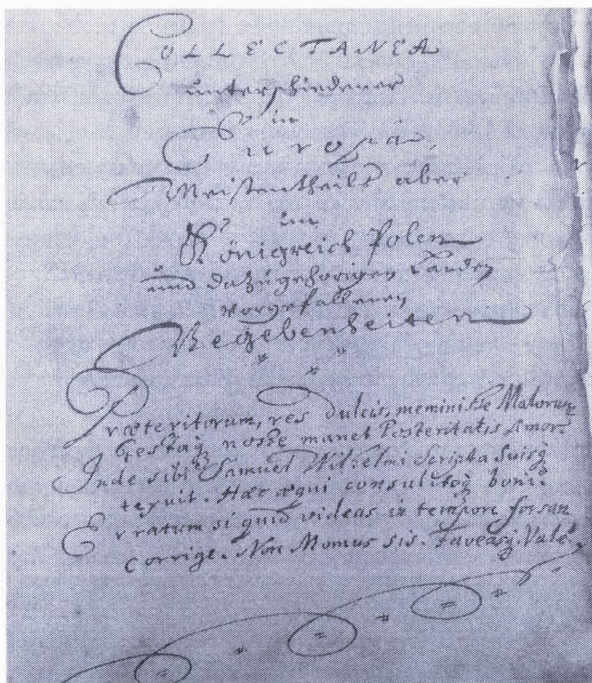 COLLECTANEA
unterschiedener
in
Europa,
Meistentheils aber
im
Königreich Polen
und dazugehörigen Landen
vorgefallenen
Begebenheiten
Præteritorum, res dulcis, meminisse Malorum
Gestaq; nosse manet Posteritatis Amor.
Inde sibi Samuel Wilhelmi Scripta Suisq;
texuit. Hæc æqui consulitoq; boni.
Erratum si quid videas in tempore forsan
corrige. Non Momus sis. Faveasq;. Vale.